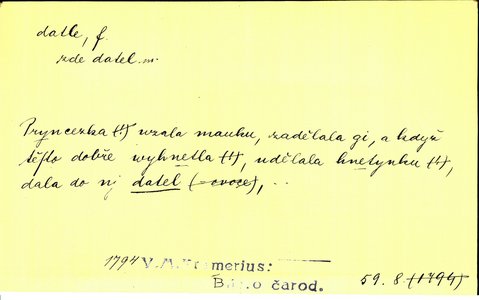 datle, f.
zde datel m.
Pryncezka (!) vzala mauku, zadělala gi, a když
těsto dobře wyhnetla (!), udělala hnetynku (!),
dala do nj datel (= ovoce), ..
1794 V. M. Kramerius:
B. o čarod.
59. 8. (1794)